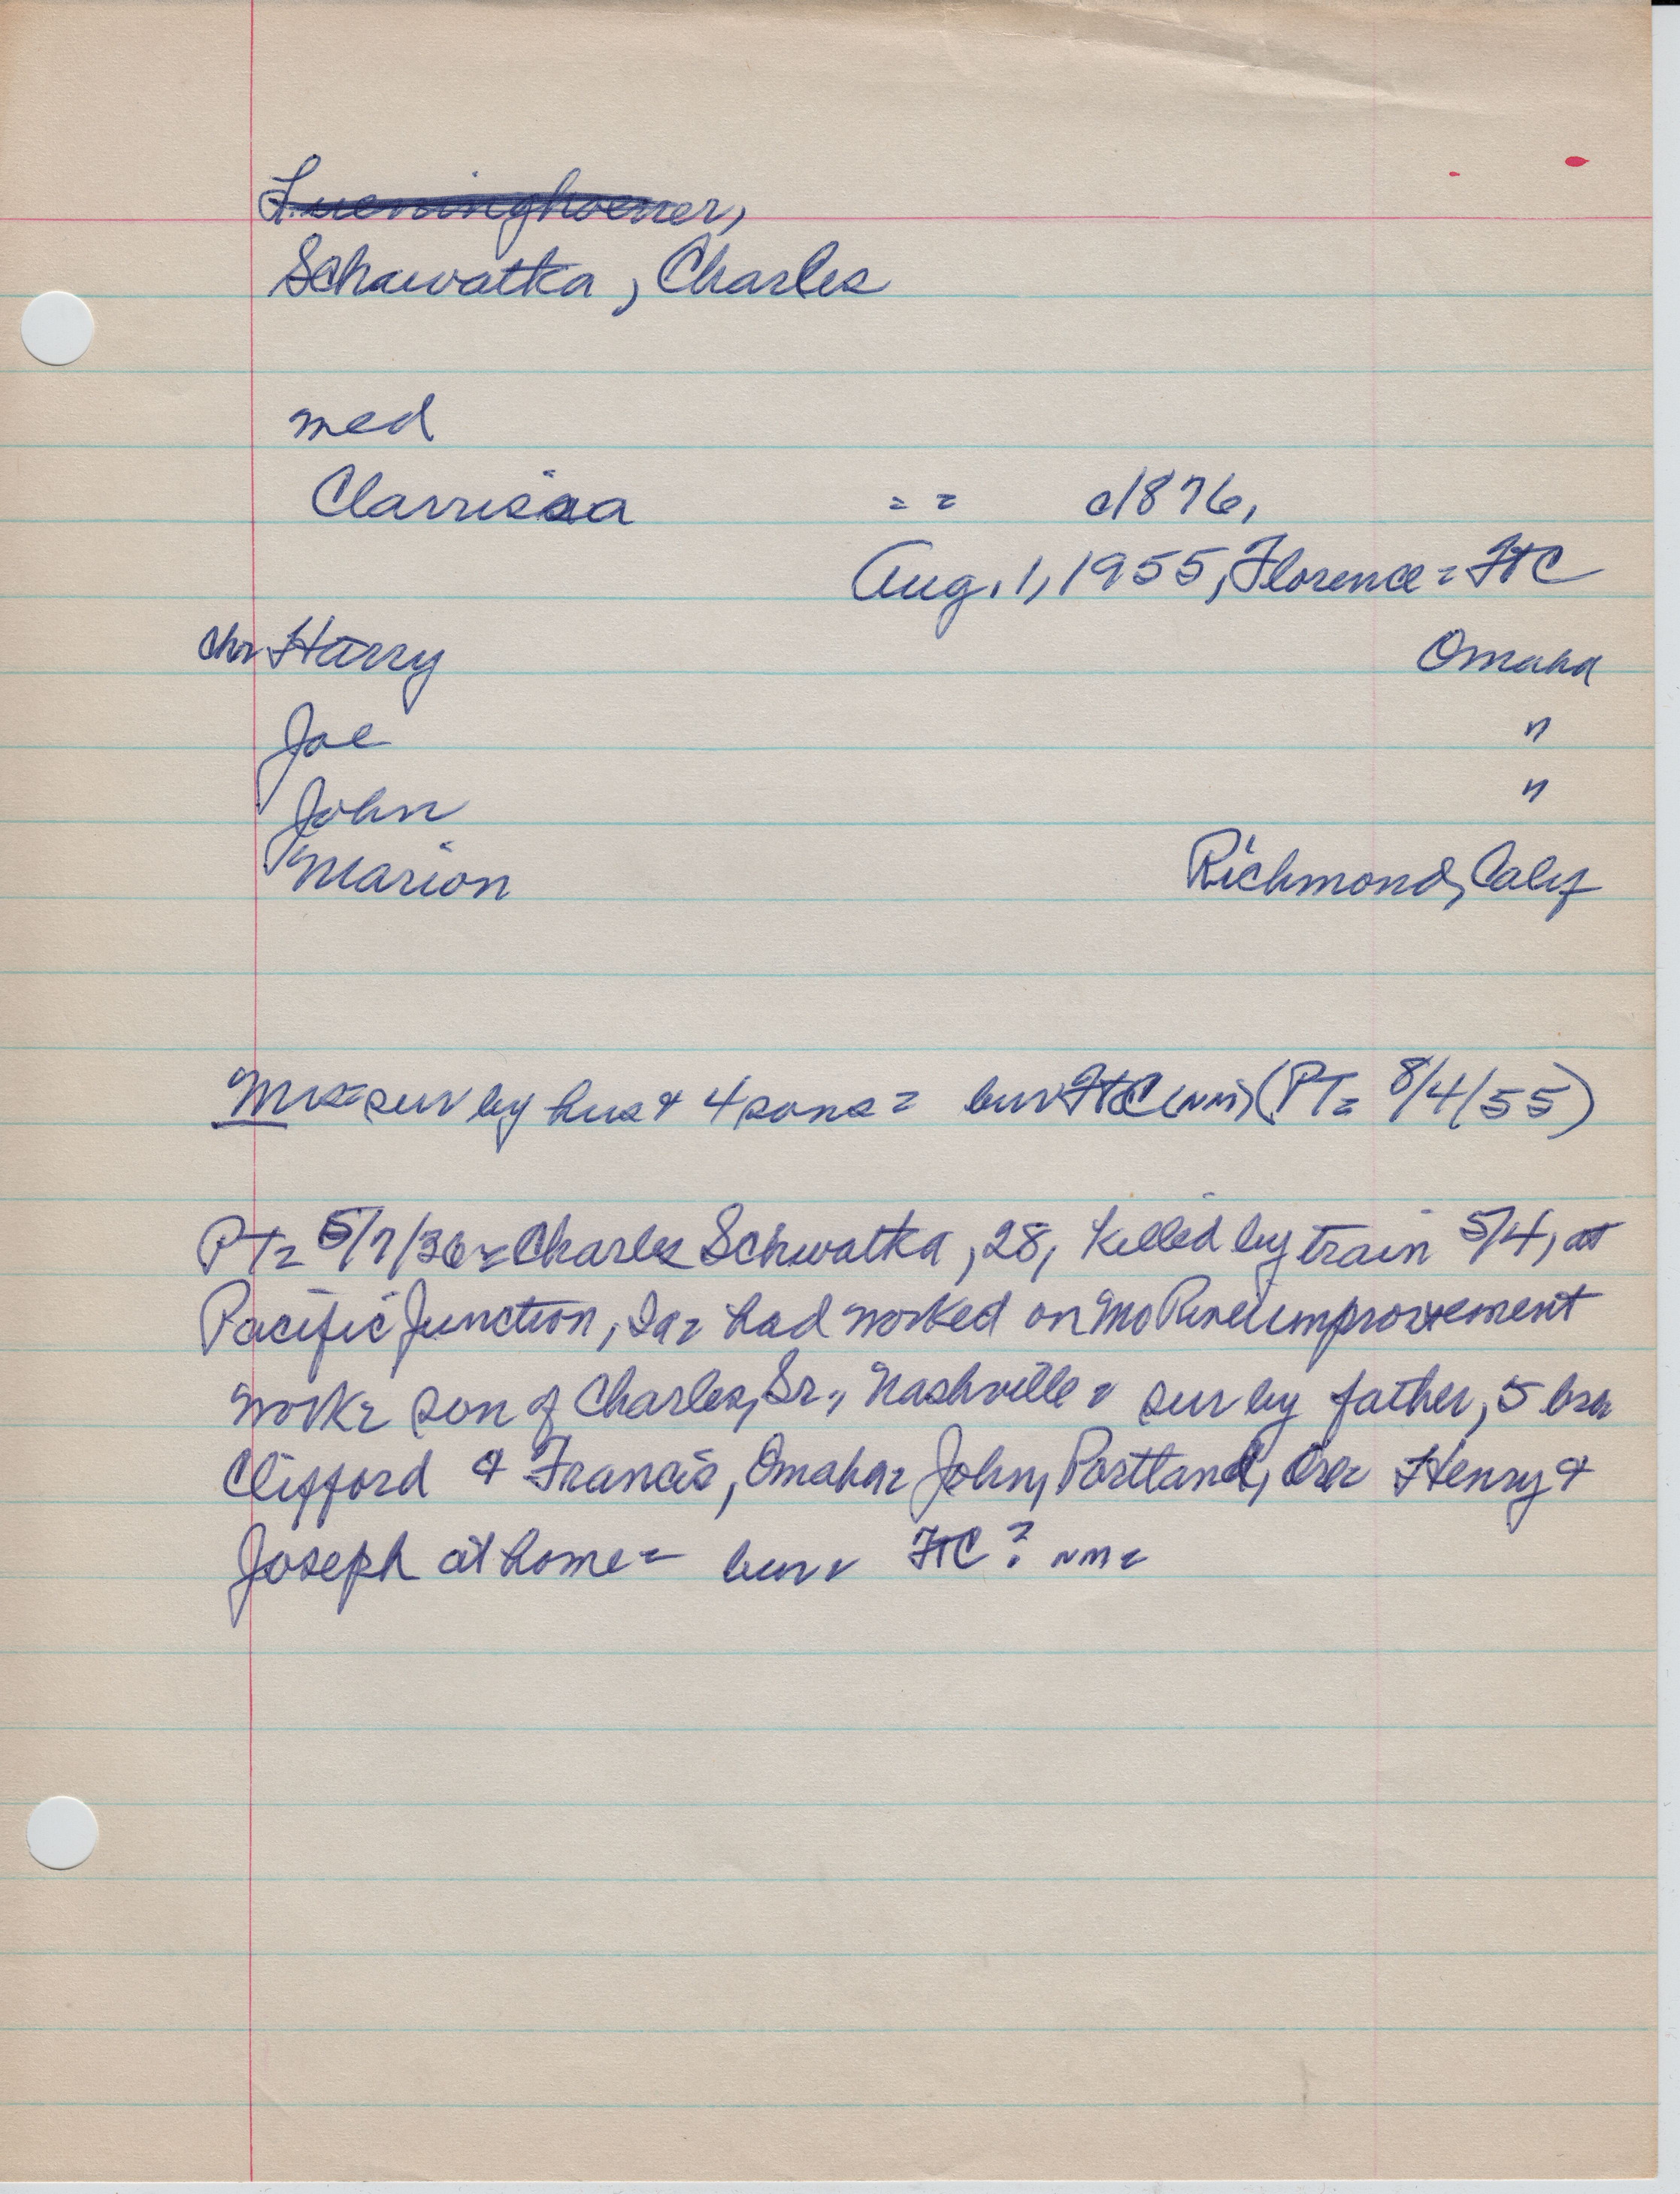 Lueninghoener,
Schawatka, Charles
med
Clarrissa = = c1876,
Aug. 1, 1955, Florence = FtC
chr Harry Omaha
Joe "
John "
Marion Richmond, Calif
Mrs = sur by hus & 4 sons = bur FtC (nm) (PT = 8/4/55)
PT = 5/7/36 = Charles Schwatka, 28, killed by train 5/4, at
Pacific Junction, Ia = had worked on Mo River improvement
work = son of Charles, Sr., Nashville = sur by father, 5 bro
Clifford & Francis, Omaha = John, Portland, Ore = Henry &
Joseph at home = bur = FtC? nm =